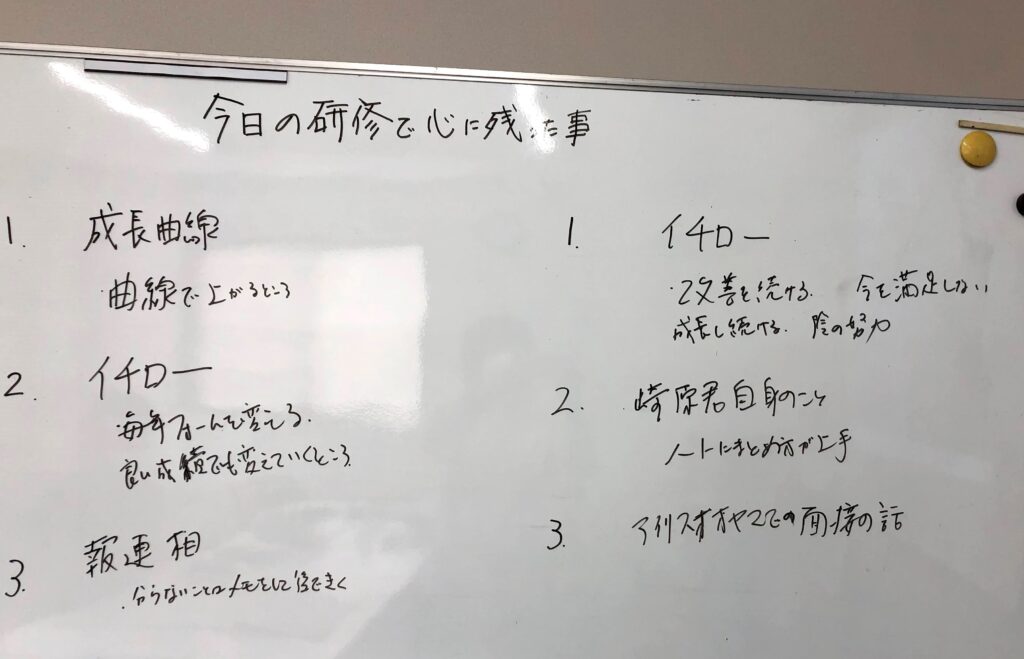 今日の研修で心に残った事
1. 成長曲線
・曲線で上がるところ
2. イチロー
毎年フォームを変える.
良い成績でも変えていくところ.
3. 報連相
・分らないことはメモをして後できく
1. イチロー
・改善を続ける. 今を満足しない
成長し続ける. 陰の努力
2. 崎原君自身のこと
ノートにまとめ方が上手
3. アイリスオオヤマでの面接の話